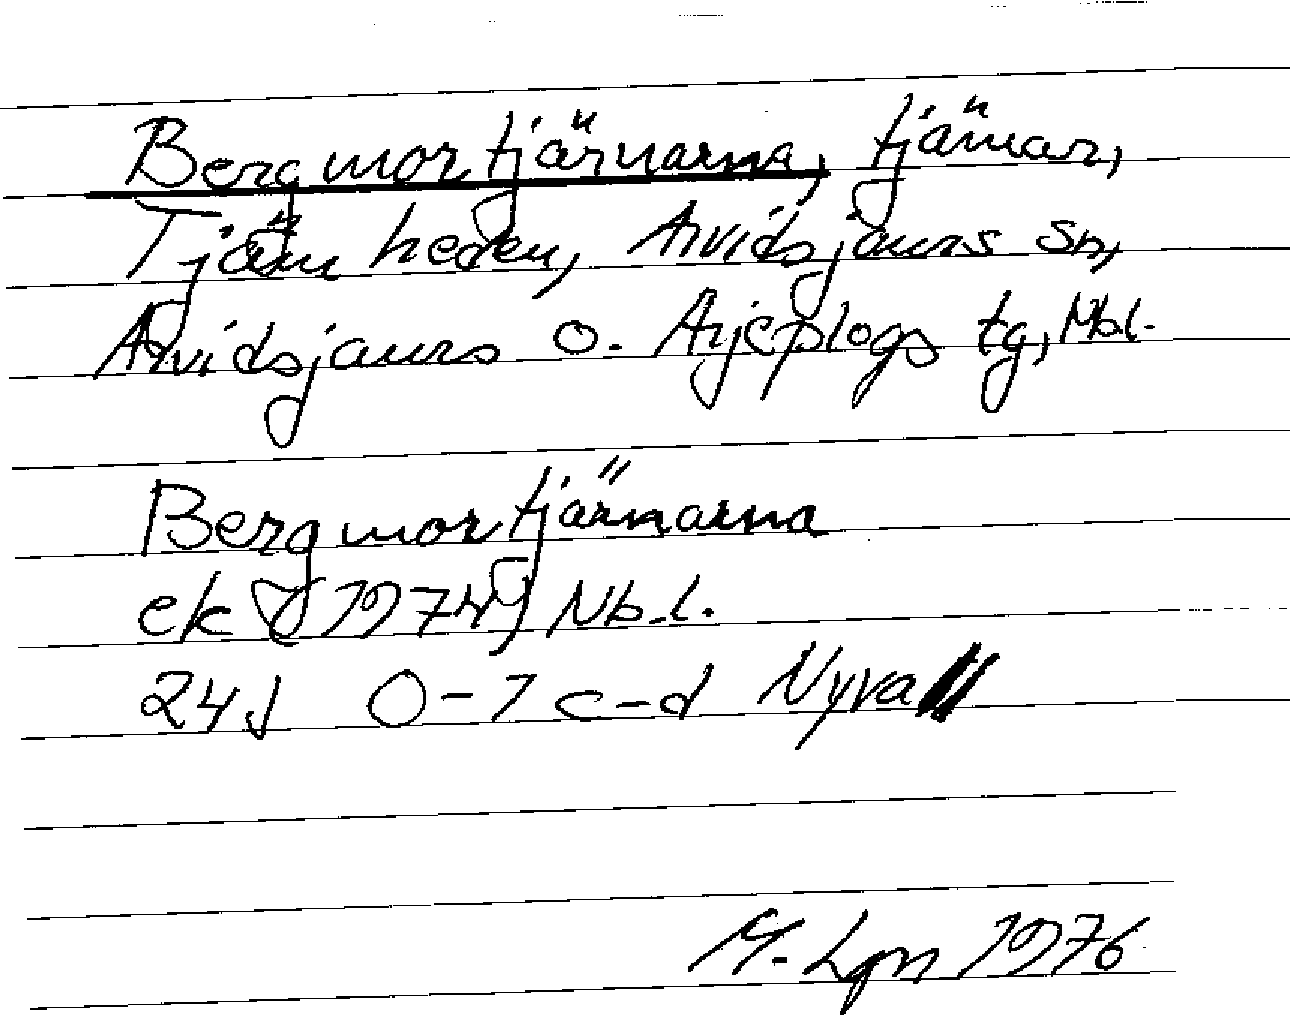 Bergmortjärnarna, tjärnar,
Tjärnheden, Arvidsjaurs sn,
Arvidsjaurs o. Arjeplogs tg, Nbl.
Bergmortjärnarna
ek (1974) Nb.l.
24J 0-7 c-d Nyvall
M. Lgn 1976